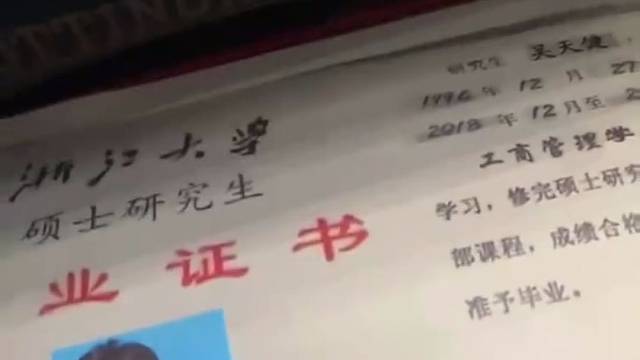 浙江大学
硕士研究生
业证书
研究生 吴天
1996年12月27
2018年12月至2
工商管理学
学习，修完硕士研究
部课程，成绩合格
准予毕业。